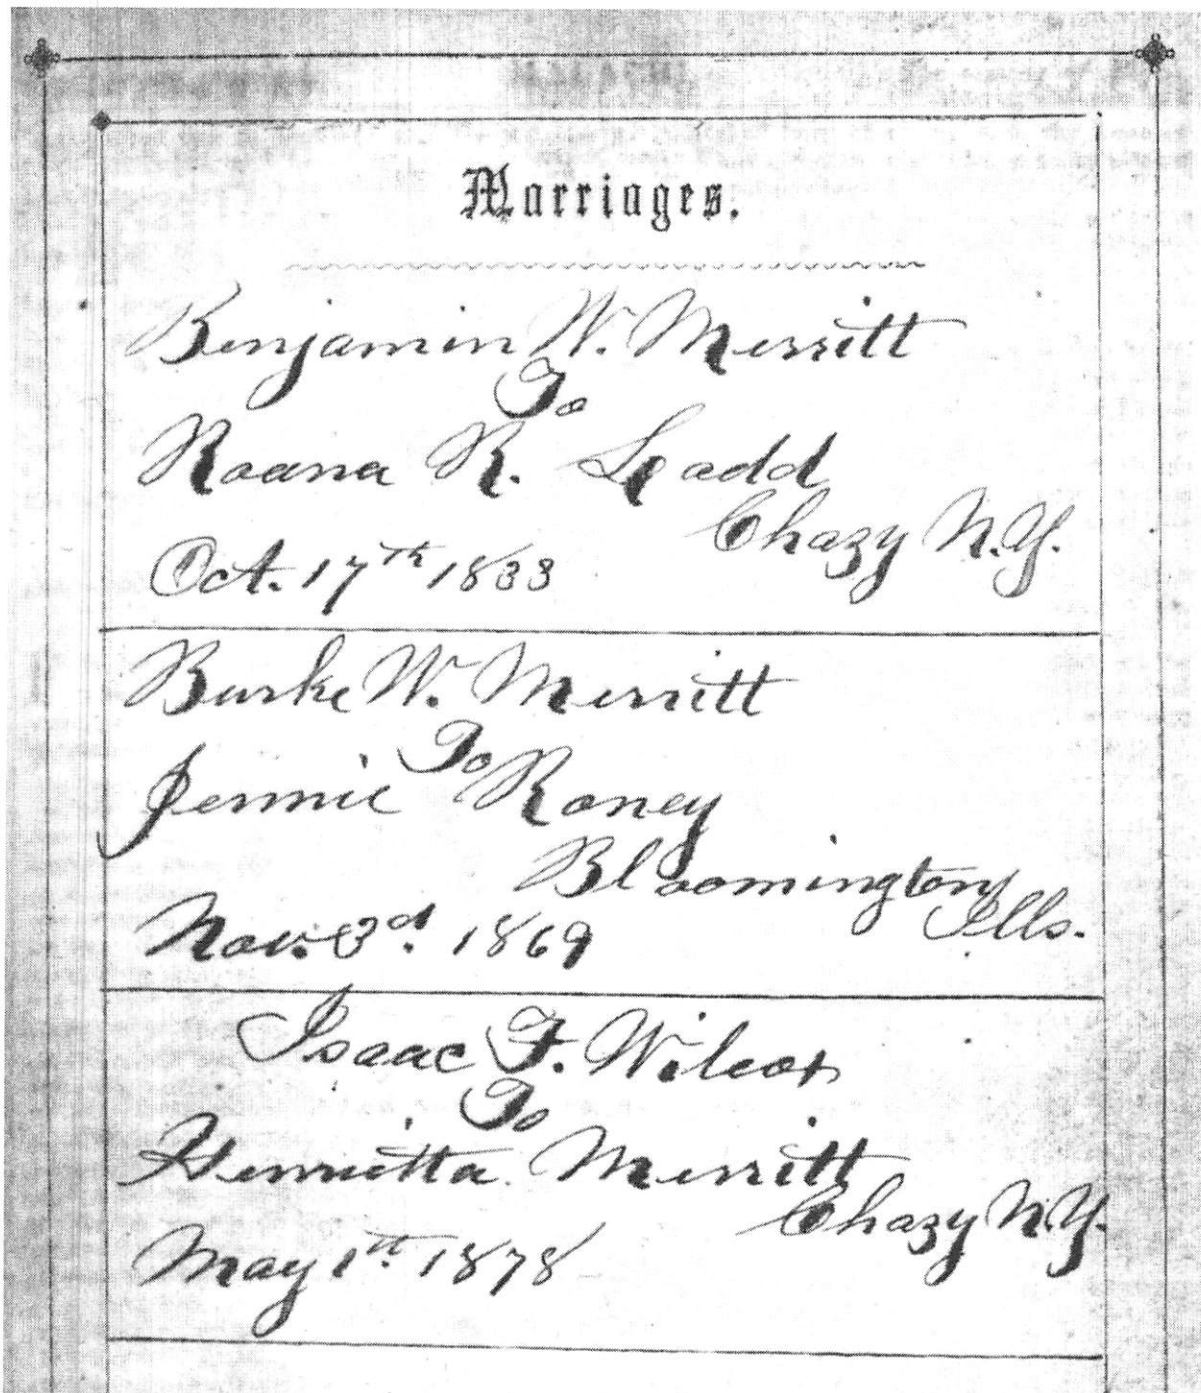 Marriages.
Benjamin W. Merritt
To
Roana R. Ladd
Chazy N.Y.
Oct. 17th 1833
Burke W. Merritt
To
Jennie Roney
Bloomington
Ills.
Nov. 3d. 1869
Isaac F. Wilcox
To
Henrietta Merritt
Chazy N.Y.
May 1st. 1878